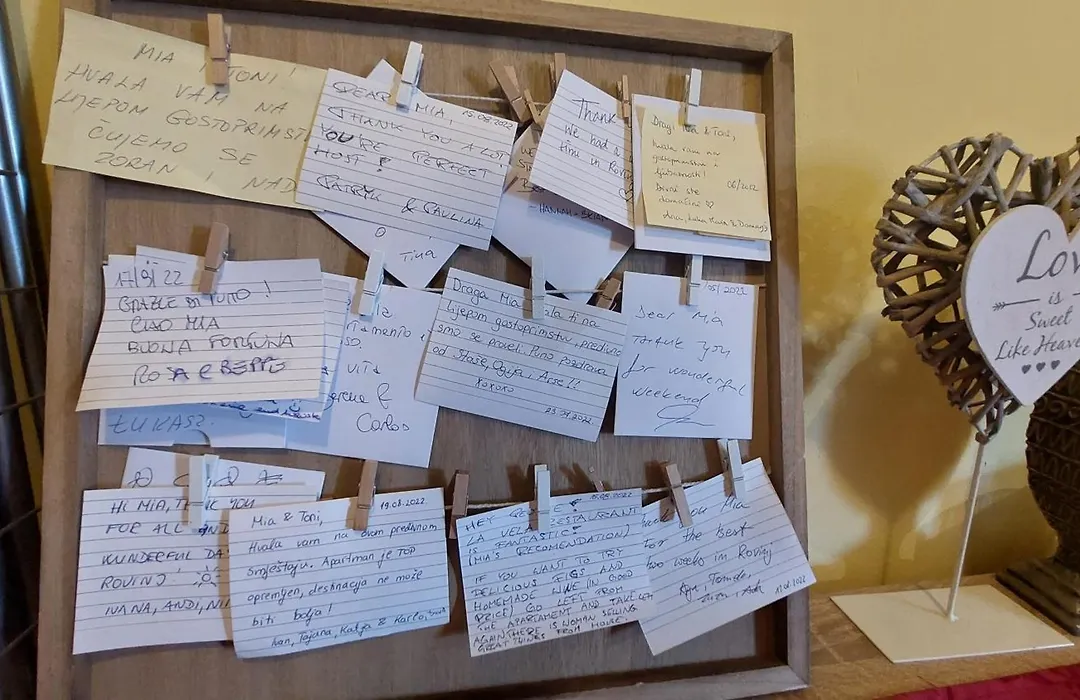 MIA I TONI!
HVALA VAM NA
LIJEPOM GOSTOPRIMST
ČUJEMO SE
ZORAN I NAD
DEAR MIA,
15.08.2022
THANK YOU A LOT
YOU'RE PERFECT
HOST!
PATRYK & PAULINA
Tina
HANNAH - BRIAN
Thank
We had a
time in Rovinj
Dragi Mia & Toni,
hvala vam na
gostoprimstvu i
ljubaznosti!
Divni ste
domaćini ♡
06/2022
Ana, Luka, Mara & Domagoj
17/9/22
GRAZIE DI TUTTO!
CIAO MIA
BUONA FORTUNA
ROSA E BEPPE
ŁUKASZ.
Carlos
Draga Mia hvala ti na
lijepom gostoprimstvu, predivno
smo se proveli. Puno pozdrava
od Staše, Ognja i Arsella
xoxoxo
23.07.2022.
Dear Mia
Thank you
for wonderful
weekend
HI MIA, THANK YOU
FOR ALL AND
WUNDERFUL DA
ROVINJ!
IVANA, ANDI, NI
19.08.2022
Mia & Toni,
Hvala vam na ovom predivnom
smještaju. Apartman je TOP
opremljen, destinacija ne može
biti bolja!
Ivan, Tajana, Katja & Karlo
HEY
LA VELA RESTAURANT
IS FANTASTIC!
(MIA'S RECOMENDATION)
IF YOU WANT TO TRY
DELICIOUS FIGS AND
HOMEMADE WINE (IN GOOD
PRICE) GO LEFT FROM
THE APARTMENT AND TAKE LEFT
AGAIN THERE IS WOMAN SELLING
GREAT THINGS FROM HOUSE.
you Mia
for the best
two weeks in Rovinj
Love
is
Sweet
Like Heaven